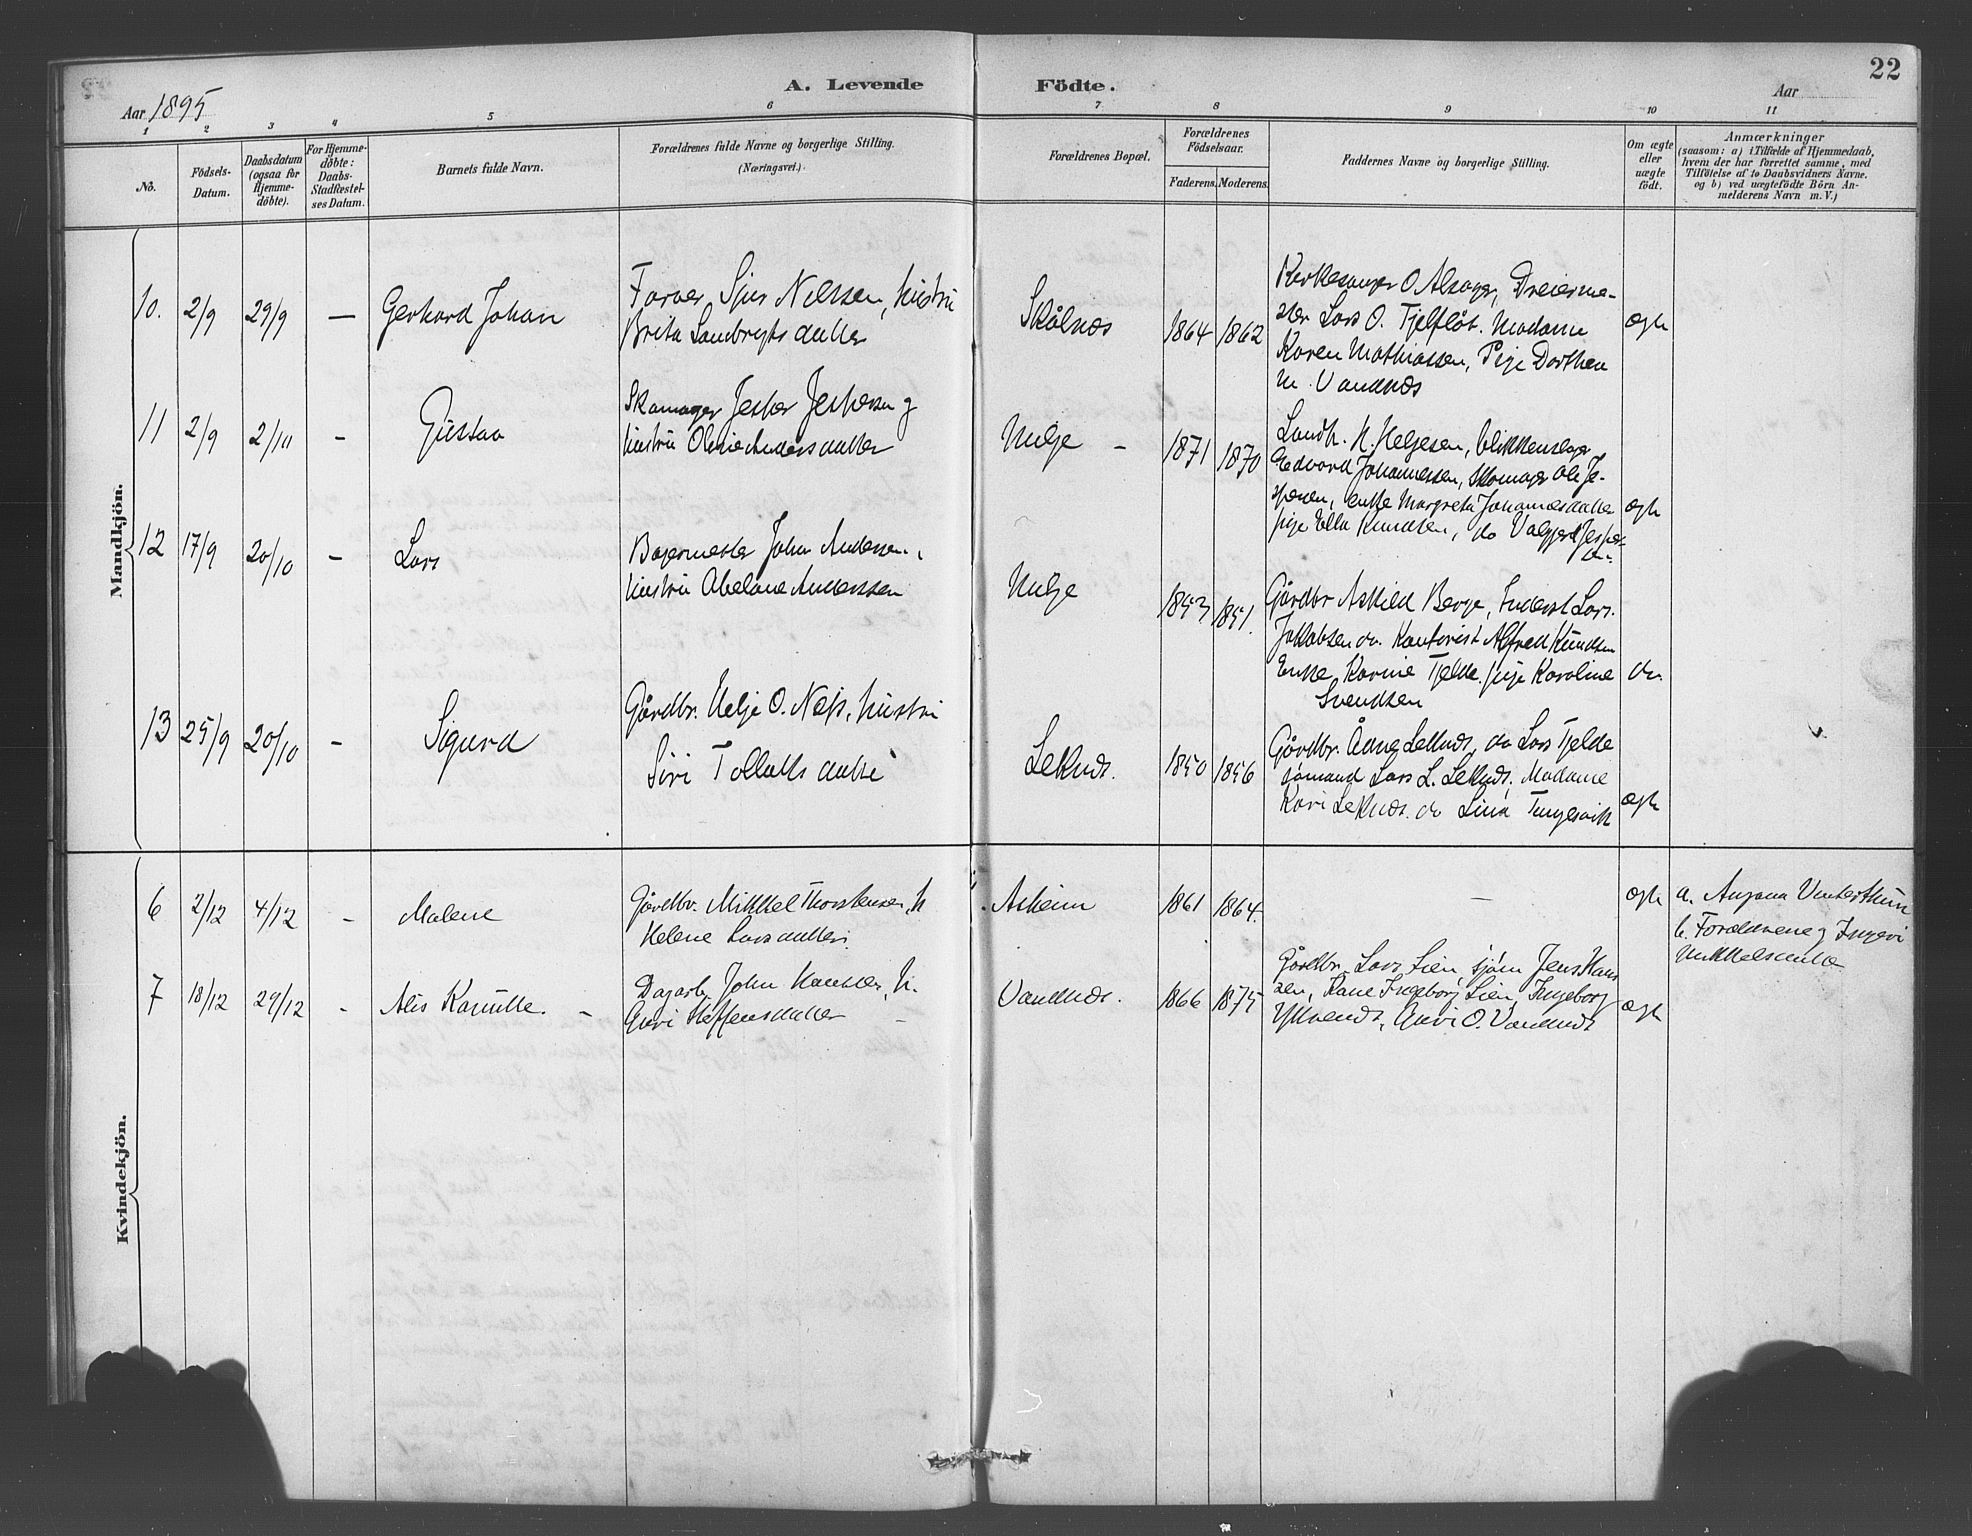 22
A. Levende Födte.
Aar 1895
Aar
1 2 3 4 5 6 7 8 9 10 11
No.
Födsels-
Datum.
Daabsdatum
(ogsaa for
Hjemme-
döbte).
For Hjemme-
döbte:
Daabs-
Stadfæstel-
ses Datum.
Barnets fulde Navn.
Forældrenes fulde Navne og borgerlige Stilling.
(Næringsvei.)
Forældrenes Bopæl.
Forældrenes
Födselsaar.
Faderens. Moderens.
Faddernes Navne og borgerlige Stilling.
Om ægte
eller
uægte
födt.
Anmærkninger
(saasom: a) i Tilfælde af Hjemmedaab,
hvem der har forrettet samme, med
Tilföielse af to Daabsvidners Navne.
og b) ved uægtefödte Börn An-
melderens Navn m. V.)
Mandkjön.
10. 2/9 29/9 — Gerhard Johan
Farver Sjur Nilssen, hustru
Brita Lambregtsdatter
Skålnæs 1864 1862
Kirkesanger O. Alsager, Dreierme-
ster Lars O. Tjelflåt. Madame
Karen Mathiassen, Pige Dorthea
M. Vandnæs
ægte
11 2/9 2/10 - Gustav
Skomager Jesper Jespersen og
hustru Oline Andersdatter
Helge - 1871 1870
Landh. H. Helgesen, blikkenslager
Edvard Johannessen, skomager Ole Je-
spersen, enke Margreta Johannesdatter
pige Ella Knudsen, do Valgjerd Jesper-
sen.
ægte
12 17/9 20/10 - Lars
Bagermester John Andersen,
hustru Abelone Anderssen
Helge 1853 1851.
Gårdbr Askild Berge, Inderst Lars
Jakobsen do. Kontorist Alfred Knudsen
Enke Karine Tjelde. pige Karoline
Svendsen
do.
13 25/9 20/10 - Sigurd
Gårdbr. Helje O. Næss, hustru
Siri Tollaksdatter
Leknæs. 1850 1856
Gårdbr. Ådne Leknæs, do Lars Tjelde
sömand Lars L. Leknæs, Madame
Kari Leknæs. do Lina Tungesvik
ægte
Kvindekjön.
6 2/12 4/12 - Malene
Gårdbr. Mikkel Thorstensen, h
Helene Larsdatter.
Askeim 1861 1864.
—
ægte
a. Anzana Vinterthun
b. Forældrene og Ingevi
Mikkelsdatter
7 18/12 29/12 - Alis Kamille. -
Dagarb. John Hanssen, h.
Guri Steffensdatter -
Vandnæs. 1866 1875
Gårdbr. Lars Lien, sjöm Jens Hans
sen, Kone Ingeborg Lien, Ingeborg
Ystenæs, Guri O. Vandnæs
ægte